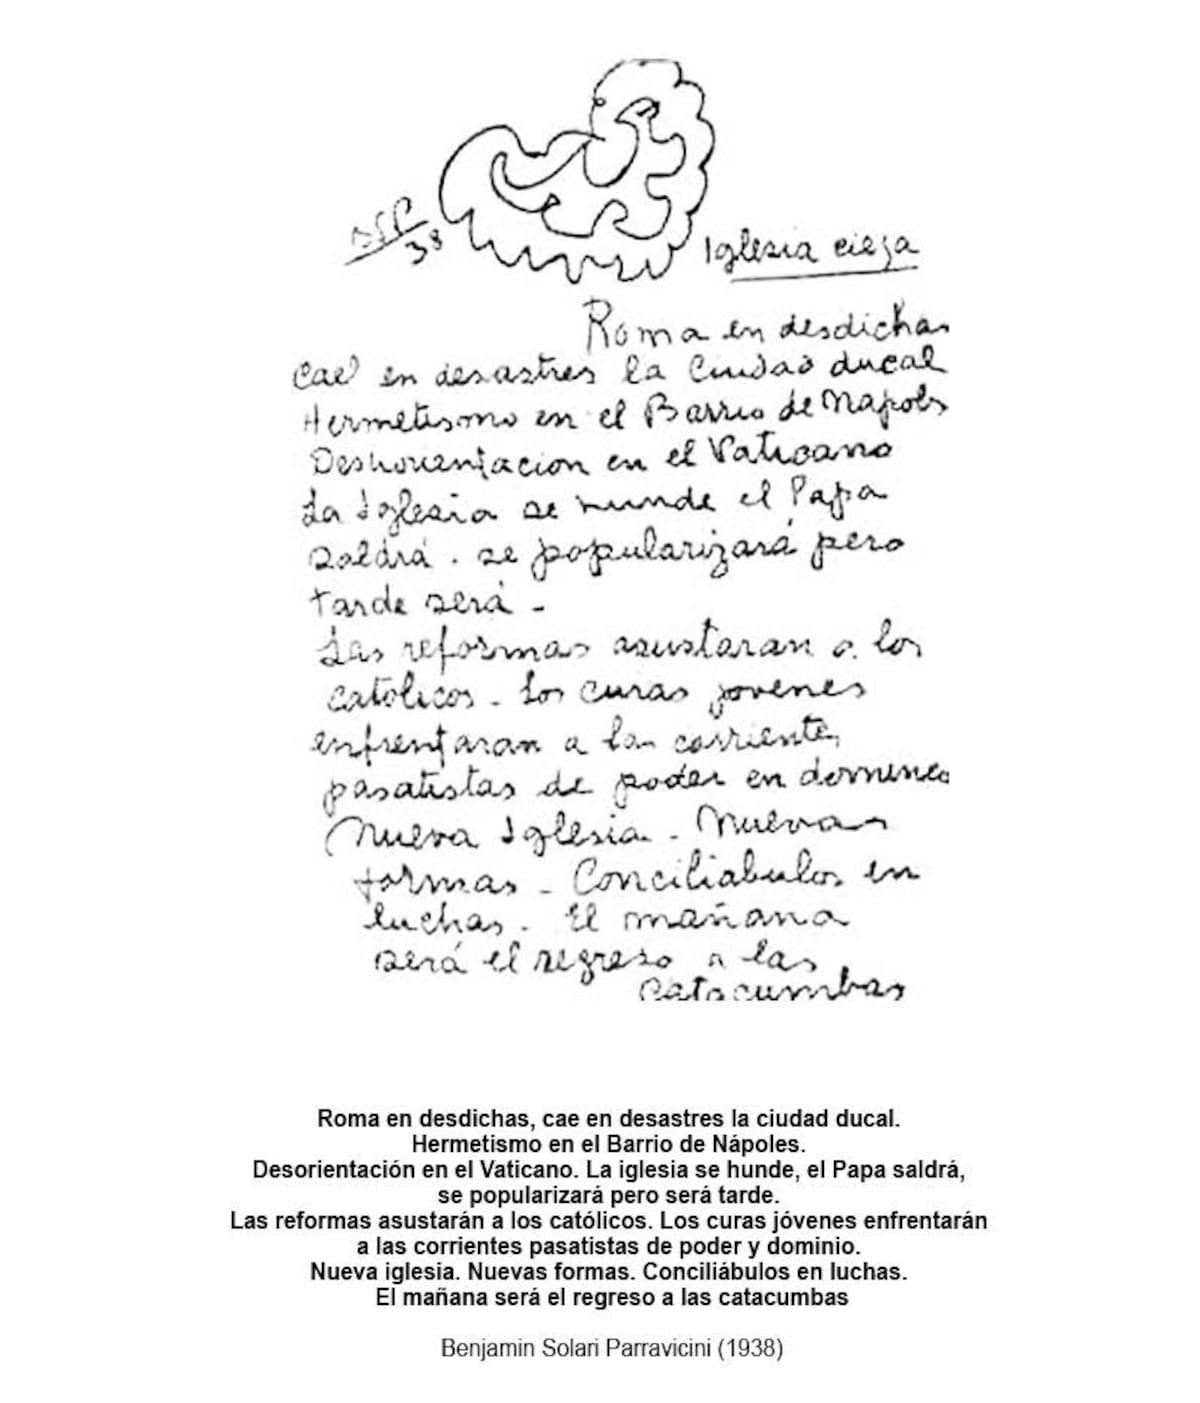 BSP
38
Iglesia ciega
Roma en desdichas
Cae en desastres la Ciudad ducal
Hermetismo en el Barrio de Napoles
Deshorientacion en el Vaticano
La Iglesia se hunde el Papa
Saldrá. se popularizará pero
tarde será -
Las reformas asustaran a los
catolicos - Los curas jovenes
enfrentaran a las corrientes
pasatistas de poder en
Nueva Iglesia - Nuevas
formas - Conciliabulos en
luchas. El mañana
será el regreso a las
catacumbas
Roma en desdichas, cae en desastres la ciudad ducal.
Hermetismo en el Barrio de Nápoles.
Desorientación en el Vaticano. La iglesia se hunde, el Papa saldrá,
se popularizará pero será tarde.
Las reformas asustarán a los católicos. Los curas jóvenes enfrentarán
a las corrientes pasatistas de poder y dominio.
Nueva iglesia. Nuevas formas. Conciliábulos en luchas.
El mañana será el regreso a las catacumbas
Benjamin Solari Parravicini (1938)